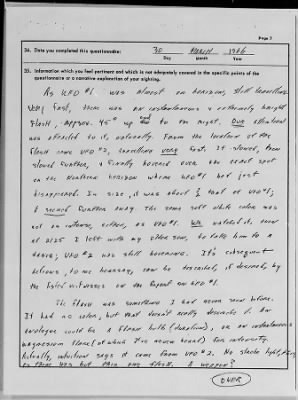 Page 7
34. Date you completed this questionnaire: 30 MARCH 1966
Day Month Year
35. Information which you feel pertinent and which is not adequately covered in the specific points of the
questionnaire or a narrative explanation of your sighting.
As UFO #1 was almost on horizon, still travelling
very fast, there was an instantaneous & extremely bright
flash, approx. 45° up and to the right. Our attention
was attracted to it, naturally. From the location of the
flash came UFO #2, travelling very fast. It slowed, then
slowed further, & finally hovered over the exact spot
on the Northern horizon where UFO #1 had just
disappeared. In size, it was about ½ that of UFO #1;
& seemed further away. The same soft white color was
not as intense, either, as UFO #1. We watched it, even
at 2125 I left with my older son, to take him to a
; UFO #2 was still hovering. It's subsequent
actions, to me hearsay, can be described, if desired, by
the listed witnesses on the Report on UFO #1.
The flash was something I had never seen before.
It had no color, but that doesn't really describe it. An
analogue could be a flash bulb (duration), or an instantaneous
magnesium flare (of which I've never heard) for intensity.
Actually, intuition says it came from UFO #2. No strobe light,
as there was but this one flash. A weapon?
OVER